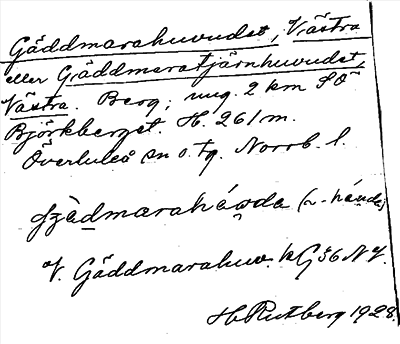 Gäddmarahuvudet, Västra
eller Gäddmaratjärnhuvudet,
Västra. Berg; ung. 2 km SÖ
Björkberget. H. 261 m.
Överluleå sn o. tg. Norrb. l.
(~ -háu̯da)
V. Gäddmarahuv. kG 36 NV.
H Rutberg 1928.